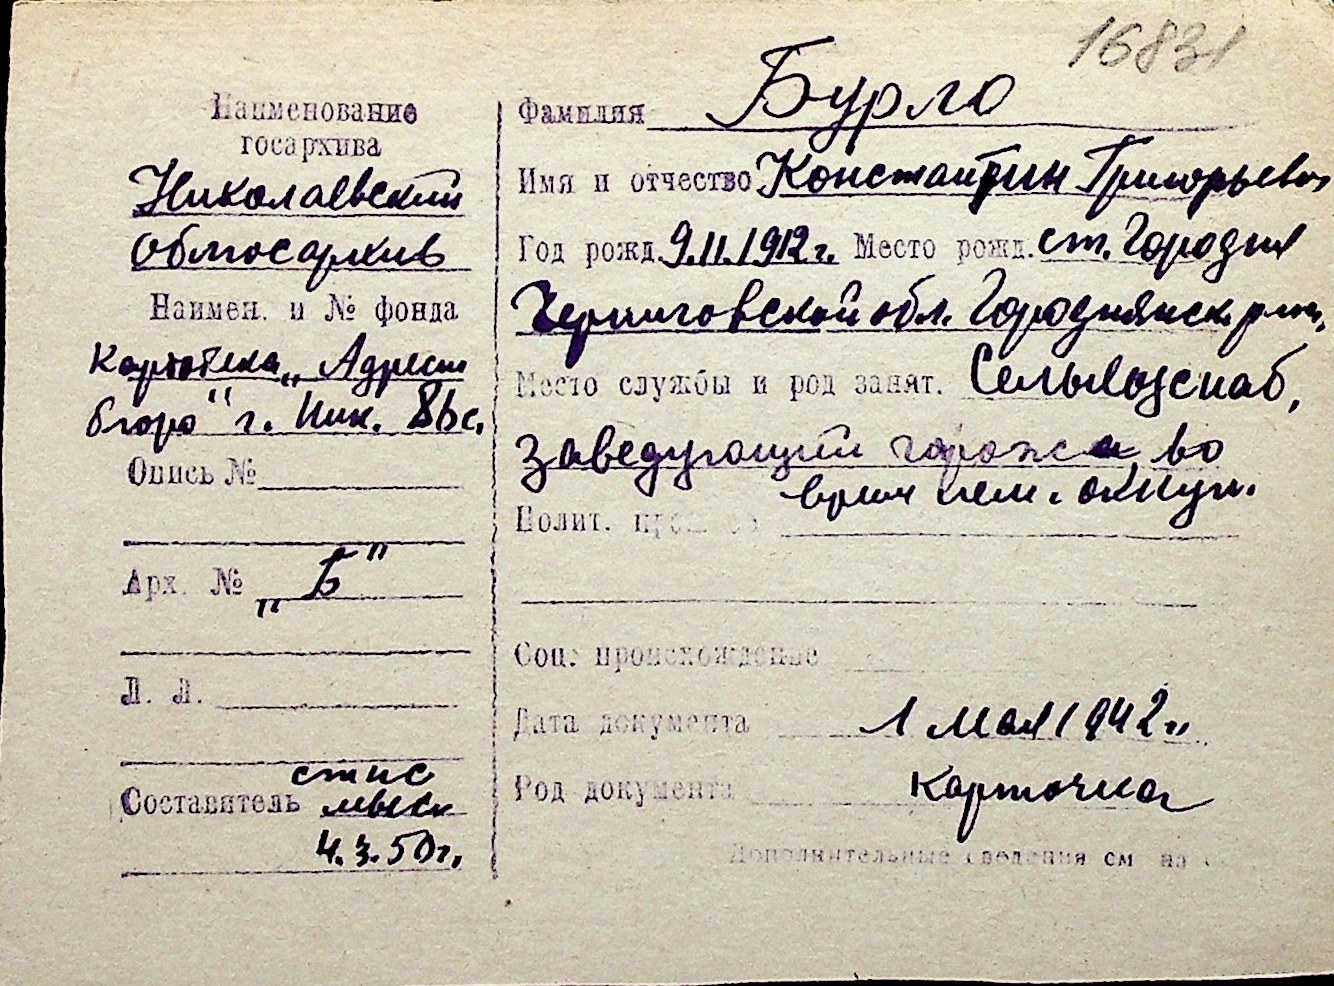 16831
Наименование
госархива
Николаевский
облгосархив
Наимен. и № фонда
Картотека „Адресн
бюро" г. Ник.
Опись №
Арх. № „Б"
Л. Л.
Составитель
4.3.50г.
Фамилия Бурло
Имя и отчество Константин Григорьевич
Год рожд. 9.11.1912г. Место рожд. ст. Городня
Черниговской обл. Городнянск. р-на,
Место службы и род занят. Сельхозснаб,
заведующий гаража, во
время нем. оккуп.
Полит.
Соц. происхождение
Дата документа 1 мая 1942г.
Род документа Карточка
Дополнительные сведения см на